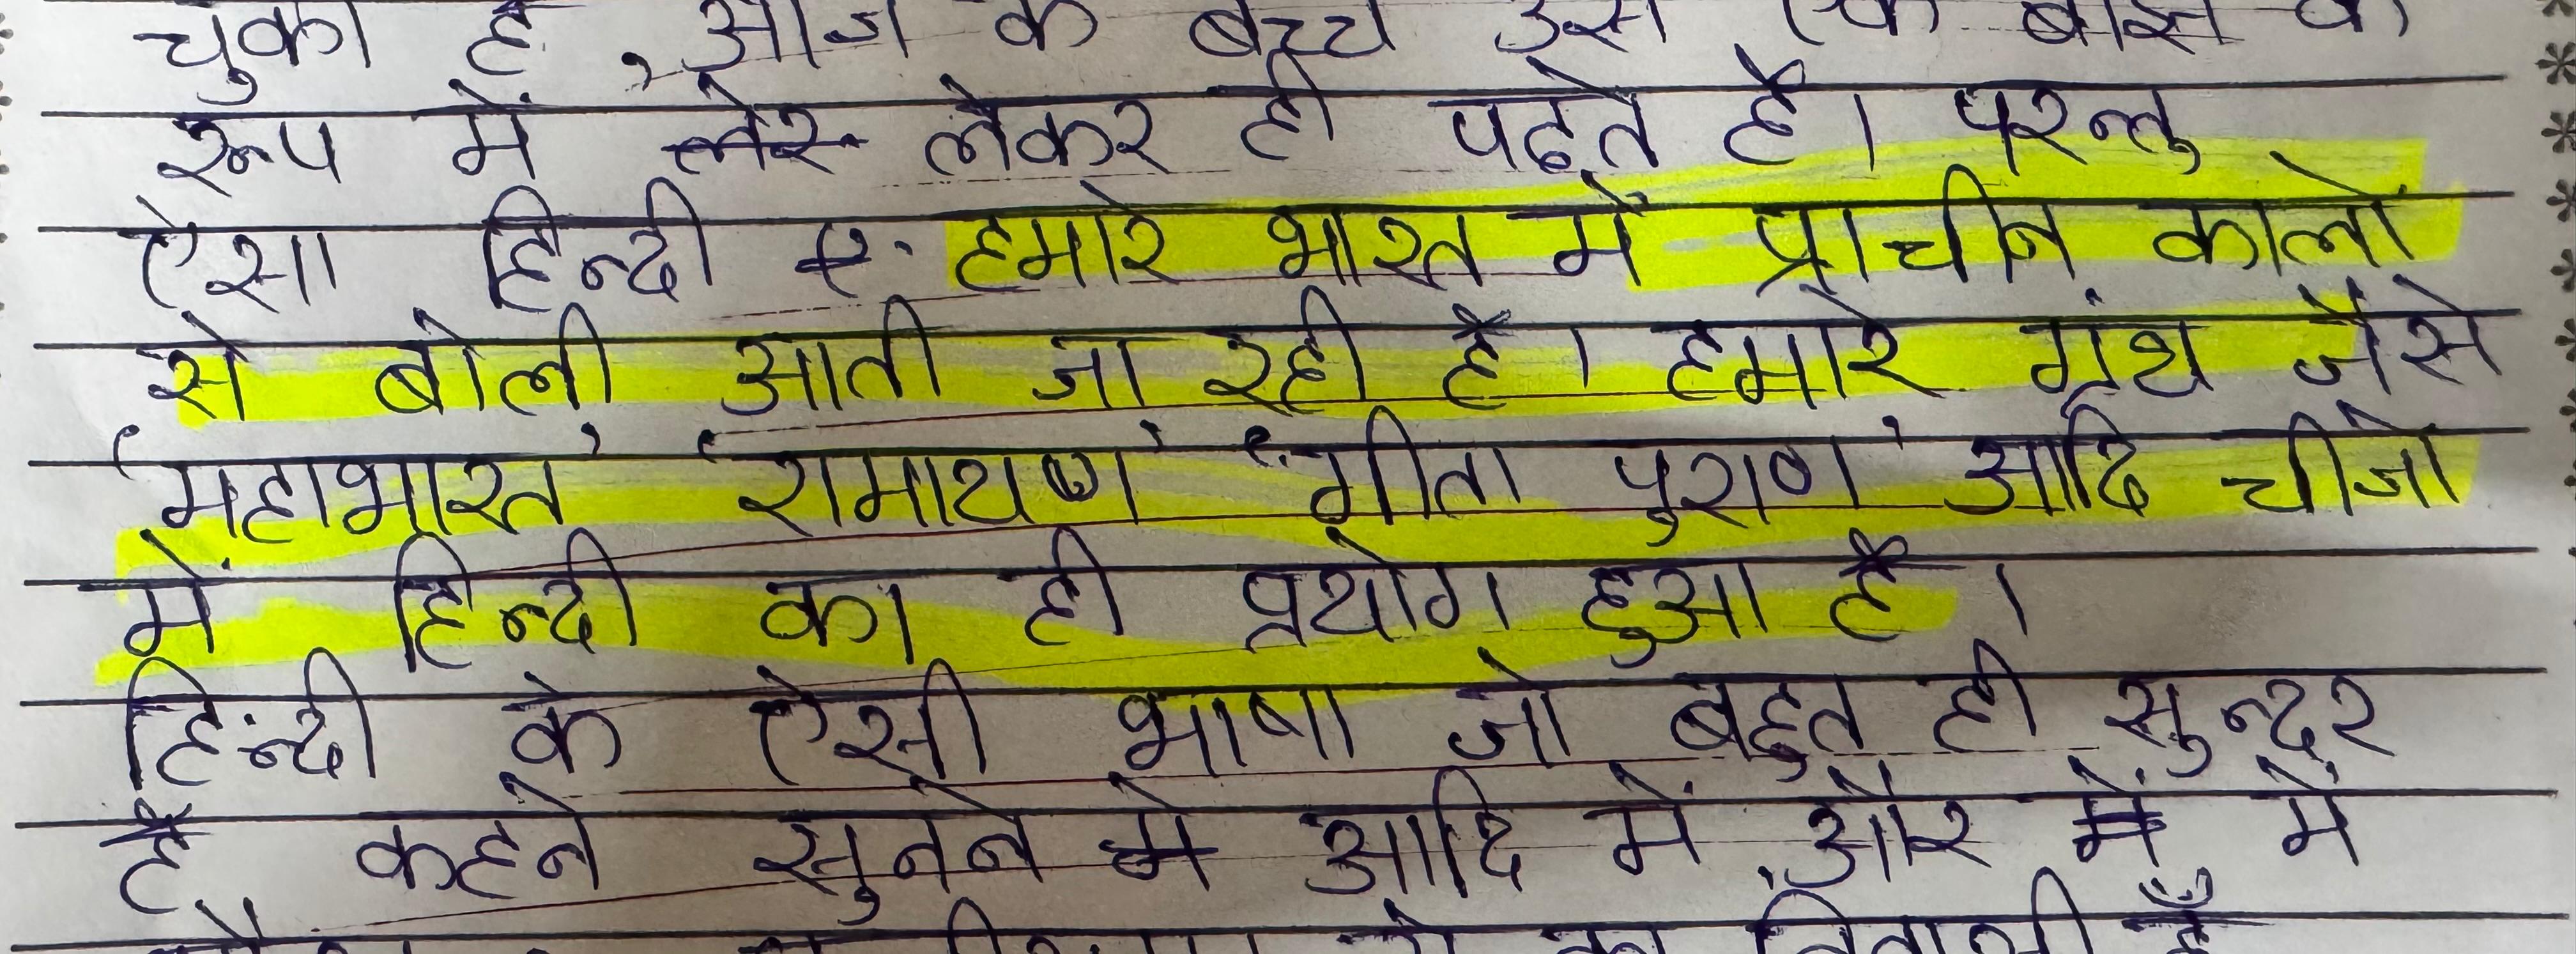 चुका है, आज के बच्चे उसे एक बोझ के
रूप में लेकर ही पढते है। परन्तु
ऐसा हिन्दी हमारे भारत में प्राचीन कालो
से बोली आती जा रही है। हमारे ग्रंथ जैसे
'महाभारत' 'रामायण' 'गीता पुराण' आदि चीजो
में हिन्दी का ही प्रयोग हुआ है।
हिंन्दी के ऐसी भाषा जो बहुत ही सुन्दर
है कहने सुनने आदि में, और में